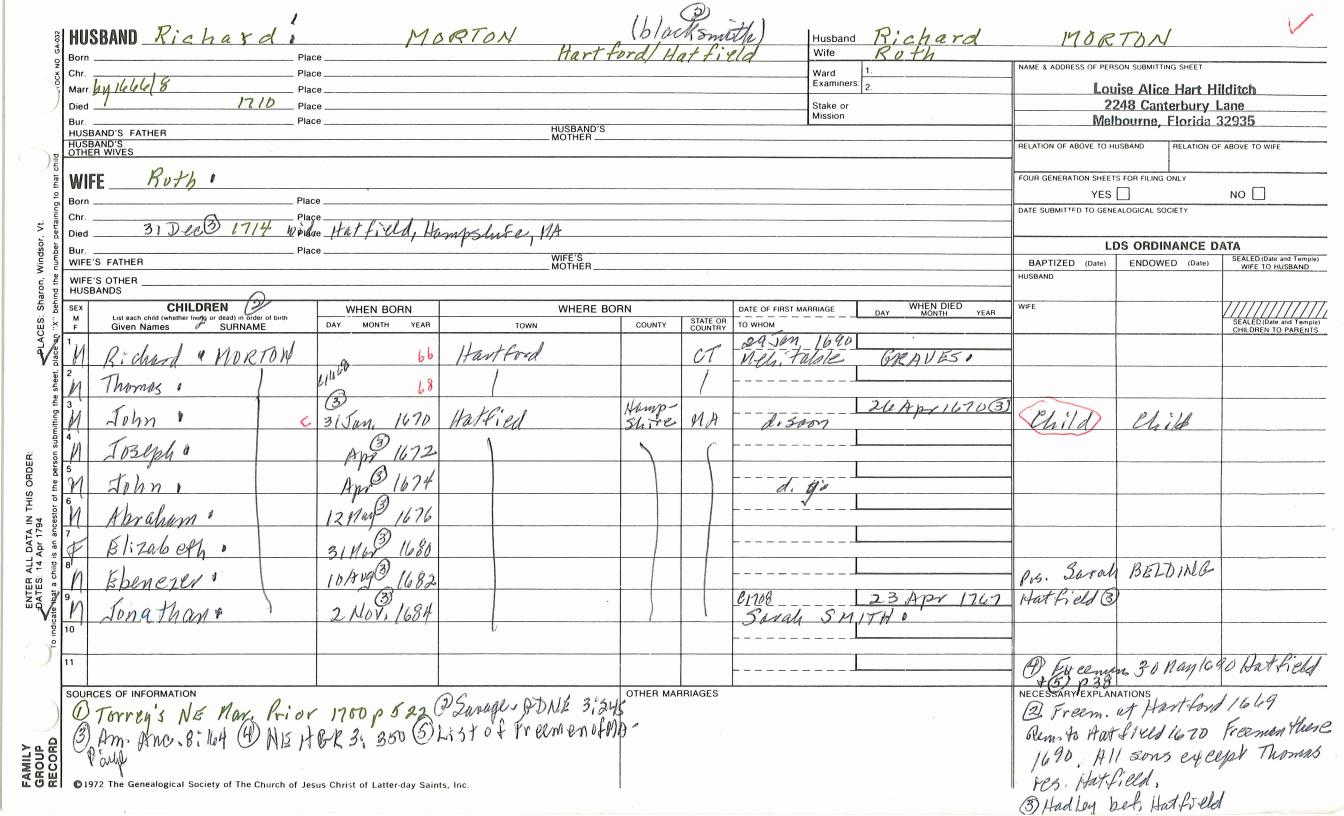 HUSBAND Richard MORTON (blacksmith) ②
Hartford/Hatfield
Born Place
Chr. Place
Marr by 1666/8 Place
Died 1710 Place
Bur. Place
HUSBAND'S FATHER HUSBAND'S MOTHER
HUSBAND'S OTHER WIVES
Husband Richard MORTON
Wife Ruth
Ward Examiners 1.
2.
Stake or Mission
NAME & ADDRESS OF PERSON SUBMITTING SHEET
Louise Alice Hart Hilditch
2248 Canterbury Lane
Melbourne, Florida 32935
RELATION OF ABOVE TO HUSBAND RELATION OF ABOVE TO WIFE
FOUR GENERATION SHEETS FOR FILING ONLY
YES NO
DATE SUBMITTED TO GENEALOGICAL SOCIETY
WIFE Ruth
Born Place
Chr. Place
Died 31 Dec ③ 1714 Place Hatfield, Hampshire, MA
Bur. Place
WIFE'S FATHER WIFE'S MOTHER
WIFE'S OTHER HUSBANDS
LDS ORDINANCE DATA
BAPTIZED (Date) ENDOWED (Date) SEALED (Date and Temple) WIFE TO HUSBAND
HUSBAND
WIFE
SEALED (Date and Temple) CHILDREN TO PARENTS
SEX M F
CHILDREN ②
List each child (whether living or dead) in order of birth
Given Names SURNAME
WHEN BORN DAY MONTH YEAR
WHERE BORN TOWN COUNTY STATE OR COUNTRY
DATE OF FIRST MARRIAGE TO WHOM
WHEN DIED DAY MONTH YEAR
1 M Richard MORTON 66 Hartford CT 29 Jan 1690 GRAVES
2 M Thomas c1668 68
3 M John c ③ 31 Jan. 1670 Hatfied Hamp-shire MA d. soon 26 Apr 1670 ③ Child Child
4 M Joseph Apr ③ 1672
5 M John Apr ③ 1674 d. y.
6 M Abraham 12 May ③ 1676
7 F Elizabeth 31 Mar ③ 1680
8 M Ebenezer 10 Aug ③ 1682
9 M Jonathan ③ 2 Nov. 1684 c1708 Sarah SMITH 23 Apr 1767
10
11
Pos. Sarah BELDING
Hatfield ③
④ Freeman 30 May 1690 Hatfield
+ ⑤ p 38
SOURCES OF INFORMATION
① Torrey's NE Mar. Prior 1700 p 522 ② Savage GDNE 3:245
③ Am. Anc. 8:164 ④ NEHGR 3: 350 ⑤ List of Freemen of MA
OTHER MARRIAGES
NECESSARY EXPLANATIONS
② Freem. at Hartford 1669
Rem. to Hatfield 1670 Freeman there
1690. All sons except Thomas
res. Hatfield.
③ Hadley bef. Hatfield
©1972 The Genealogical Society of The Church of Jesus Christ of Latter-day Saints, Inc.
FAMILY GROUP RECORD
ENTER ALL DATA IN THIS ORDER:
DATES: 14 Apr 1794
PLACES: Sharon, Windsor, Vt.
To indicate that a child is an ancestor of the person submitting the sheet, place an "X" behind the number pertaining to that child